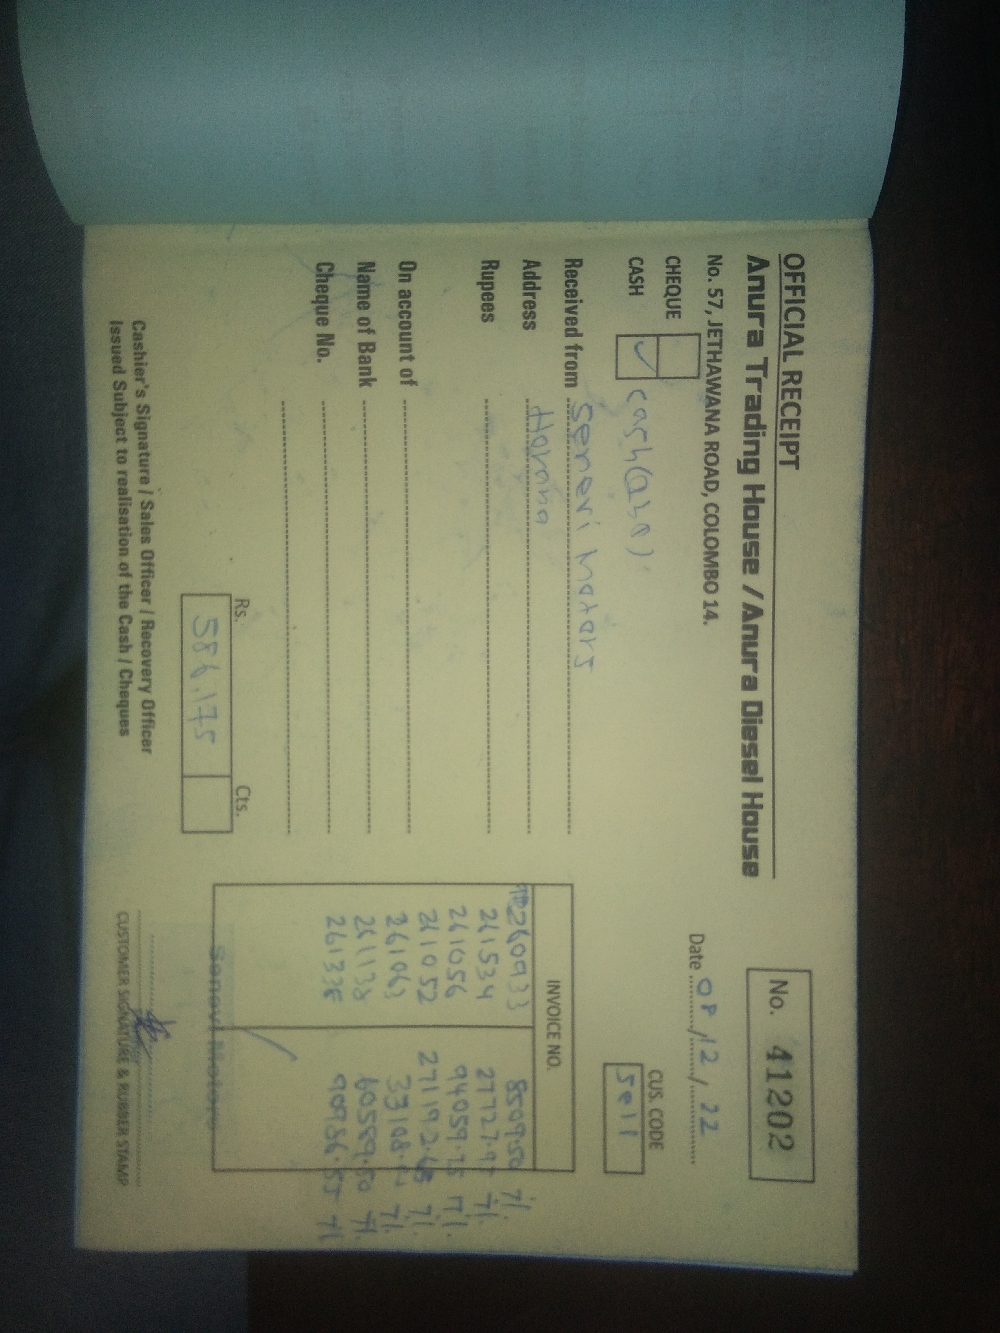 OFFICIAL RECEIPT
Anura Trading House / Anura Diesel House
No. 57, JETHAWANA ROAD, COLOMBO 14.
No. 41202
Date 08/12/22
CHEQUE
CASH ✓ cash
CUS. CODE
Se11
Received from Senevi Motors
Address Horana
Rupees
On account of
Name of Bank
Cheque No.
INVOICE NO.
260933 8509.50 7%
261534 7%
261056 94059.75 7%
261052 271192.68 7%
261063 7%
261138 60589.50 7%
7%
Rs. Cts.
586,175
Senevi Motors
Cashier's Signature / Sales Officer / Recovery Officer
Issued Subject to realisation of the Cash / Cheques
CUSTOMER SIGNATURE & RUBBER STAMP